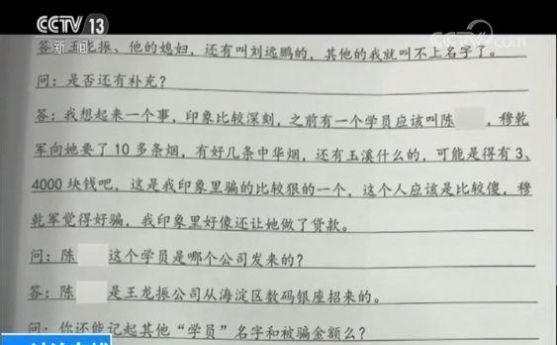 CCTV 13
新闻
CCTV.com
答：王龙振、他的媳妇，还有叫刘远鹏的，其他的我就叫不上名字了。
问：是否还有补充？
答：我想起来一个事，印象比较深刻，之前有一个学员应该叫陈 ，穆乾
军向她要了10多条烟，有好几条中华烟，还有玉溪什么的，可能是得有3、
4000块钱吧，这是我印象里骗的比较狠的一个，这个人应该是比较傻，穆
乾军觉得好骗，我印象里好像还让她做了贷款。
问：陈 这个学员是哪个公司发来的？
答：陈 是王龙振公司从海淀区数码银座招来的。
问：你还能记起其他“学员”名字和被骗金额么？